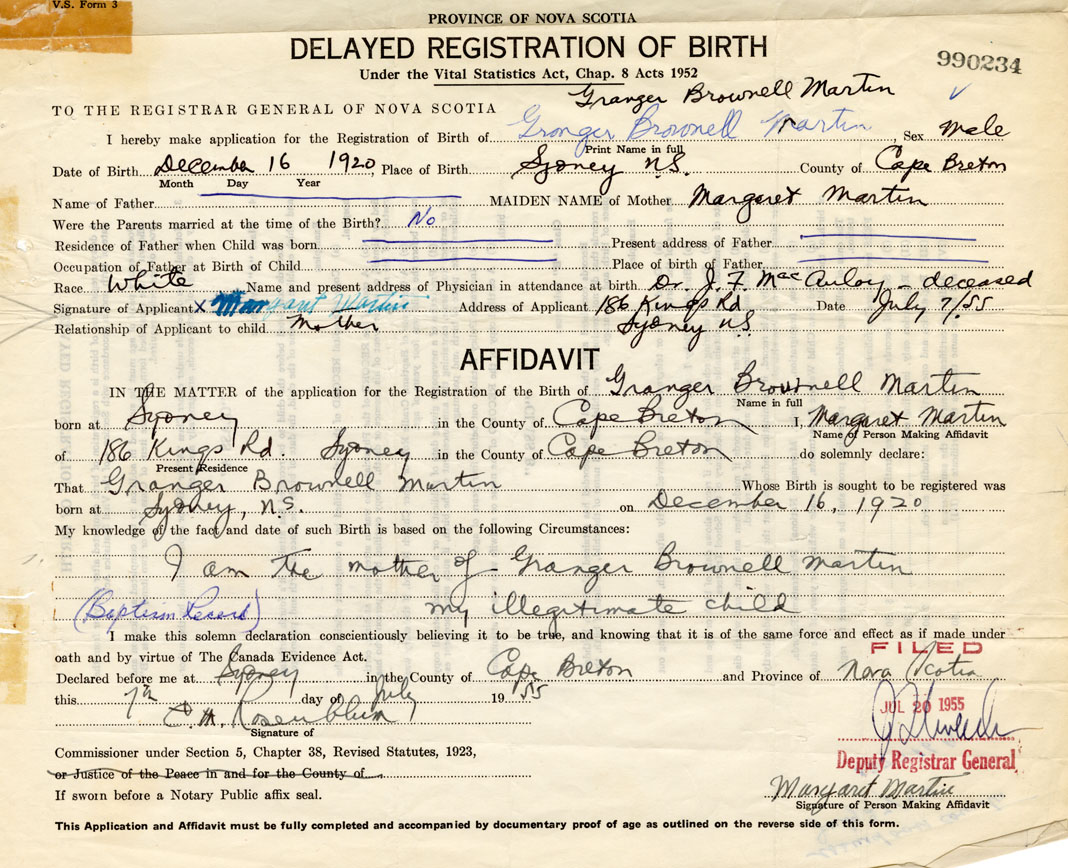 V.S. Form 3
PROVINCE OF NOVA SCOTIA
DELAYED REGISTRATION OF BIRTH
990234
Under the Vital Statistics Act, Chap. 8 Acts 1952
Granger Brownell Martin
TO THE REGISTRAR GENERAL OF NOVA SCOTIA
I hereby make application for the Registration of Birth of Granger Brownell Martin, Sex Male
Print Name in full
Date of Birth December 16 1920, Place of Birth Sydney N.S. County of Cape Breton
Month Day Year
Name of Father MAIDEN NAME of Mother Margaret Martin
Were the Parents married at the time of the Birth? No
Residence of Father when Child was born Present address of Father
Occupation of Father at Birth of Child Place of birth of Father
Race White Name and present address of Physician in attendance at birth Dr. J. F. MacAuloy - deceased
Signature of Applicant X Margaret Martin Address of Applicant 186 Kings Rd Date July 7/55
Relationship of Applicant to child Mother Sydney N.S.
AFFIDAVIT
IN THE MATTER of the application for the Registration of the Birth of Granger Brownell Martin
Name in full
born at Sydney in the County of Cape Breton I, Margaret Martin
Name of Person Making Affidavit
of 186 Kings Rd. Sydney in the County of Cape Breton do solemnly declare:
Present Residence
That Granger Brownell Martin Whose Birth is sought to be registered was
born at Sydney, N.S. on December 16, 1920
My knowledge of the fact and date of such Birth is based on the following Circumstances:
I am the mother of Granger Brownell Martin
(Baptism Record) my illegitimate child
I make this solemn declaration conscientiously believing it to be true, and knowing that it is of the same force and effect as if made under
oath and by virtue of The Canada Evidence Act.
FILED
Declared before me at Sydney in the County of Cape Breton and Province of Nova Scotia
this 7th day of July 1955
JUL 20 1955
C. M. Rosenblum
Signature of
Commissioner under Section 5, Chapter 38, Revised Statutes, 1923,
Deputy Registrar General
or Justice of the Peace in and for the County of
Margaret Martin
If sworn before a Notary Public affix seal.
Signature of Person Making Affidavit
This Application and Affidavit must be fully completed and accompanied by documentary proof of age as outlined on the reverse side of this form.